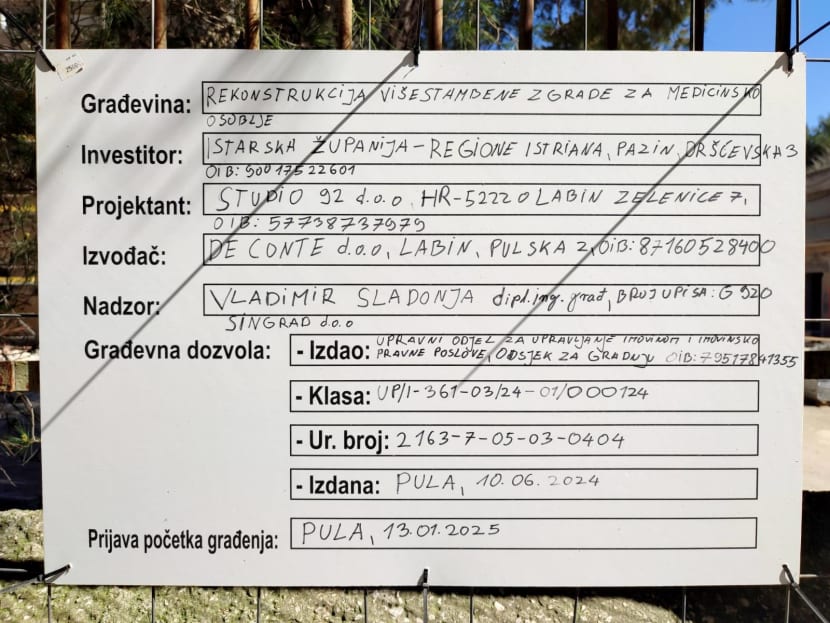 Građevina: REKONSTRUKCIJA VIŠESTAMBENE ZGRADE ZA MEDICINSKO
OSOBLJE
Investitor: ISTARSKA ŽUPANIJA-REGIONE ISTRIANA, PAZIN, DRŠĆEVSKA 3
OIB: 90017522601
Projektant: STUDIO 92 d.o.o, HR-52220 LABIN ZELENICE 7,
OIB: 57738737979
Izvođač: DE CONTE d.o.o, LABIN, PULSKA 2, OIB: 87160528400
Nadzor: VLADIMIR SLADONJA dipl.ing.građ, BROJ UPISA: G 920
SINGRAD d.o.o
Građevna dozvola: - Izdao: UPRAVNI ODJEL ZA UPRAVLJANJE IMOVINOM I IMOVINSKO
PRAVNE POSLOVE, ODSJEK ZA GRADNJU OIB: 79517841355
- Klasa: UP/I-361-03/24-01/000124
- Ur. broj: 2163-7-05-03-0404
- Izdana: PULA, 10.06.2024
Prijava početka građenja: PULA, 13.01.2025